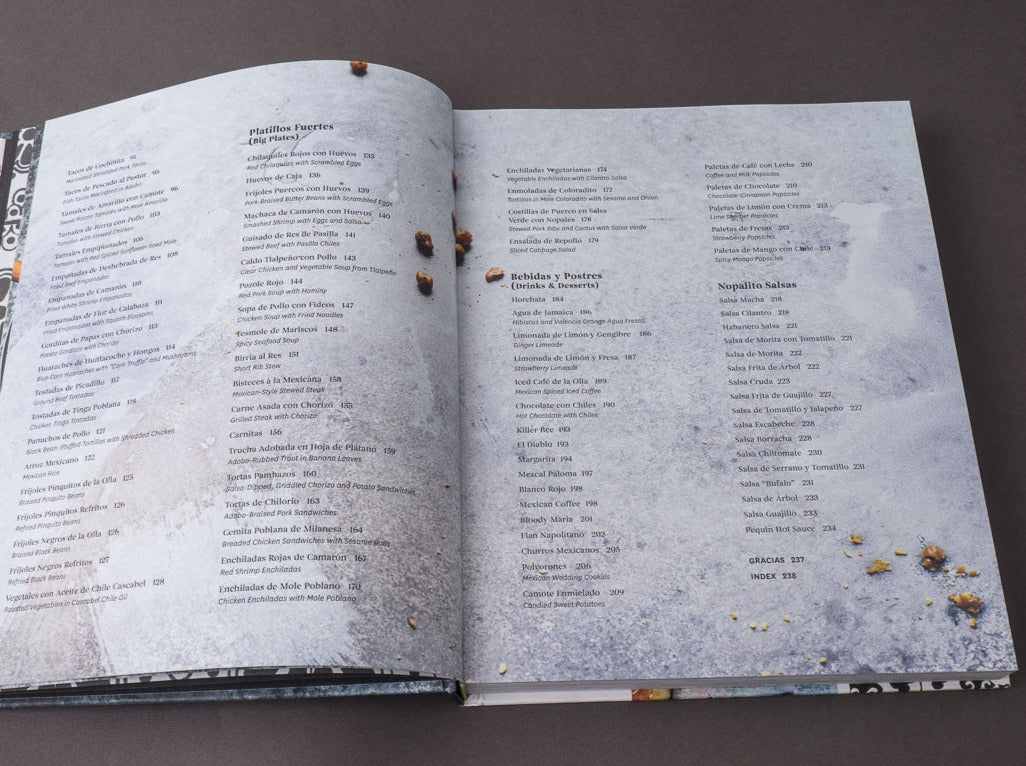 Tacos de Cochinita 91
Marinated Shredded Pork Tacos
Tacos de Pescado al Pastor 95
Fish Tacos Marinated in Adobo
Tamales de Amarillo con Camote 96
Sweet Potato Tamales with Mole Amarillo
Tamales de Birria con Pollo 103
Tamales with Stewed Chicken
Tamales Empipianados 106
Tamales with Red Spiced Sunflower Seed Mole
Empanadas de Deshebrada de Res 108
Fried Beef Empanadas
Empanadas de Camarón 110
Fried White Shrimp Empanadas
Empanadas de Flor de Calabaza 111
Fried Empanadas with Squash Blossoms
Gorditas de Papas con Chorizo 113
Potato Gorditas with Chorizo
Huaraches de Huitlacoche y Hongos 114
Blue-Corn Huaraches with "Corn Truffle" and Mushrooms
Tostadas de Picadillo 117
Ground Beef Tostadas
Tostadas de Tinga Poblana 118
Chicken Tinga Tostadas
Panuchos de Pollo 121
Black Bean–Stuffed Tortillas with Shredded Chicken
Arroz Mexicano 122
Mexican Rice
Frijoles Pinquitos de la Olla 125
Braised Pinquito Beans
Frijoles Pinquitos Refritos 126
Refried Pinquito Beans
Frijoles Negros de la Olla 126
Braised Black Beans
Frijoles Negros Refritos 127
Refried Black Beans
Vegetales con Aceite de Chile Cascabel 128
Roasted Vegetables in Cascabel Chile Oil
Platillos Fuertes
(Big Plates)
Chilaquiles Rojos con Huevos 135
Red Chilaquiles with Scrambled Eggs
Huevos de Caja 136
Frijoles Puercos con Huevos 139
Pork-Braised Butter Beans with Scrambled Eggs
Machaca de Camarón con Huevos 140
Smashed Shrimp with Eggs and Salsa
Guisado de Res de Pasilla 141
Stewed Beef with Pasilla Chiles
Caldo Tlalpeño con Pollo 143
Clear Chicken and Vegetable Soup from Tlalpeño
Pozole Rojo 144
Red Pork Soup with Hominy
Sopa de Pollo con Fideos 147
Chicken Soup with Fried Noodles
Tesmole de Mariscos 148
Spicy Seafood Soup
Birria al Res 151
Short Rib Stew
Bisteces à la Mexicana 158
Mexican-Style Stewed Steak
Carne Asada con Chorizo 155
Grilled Steak with Chorizo
Carnitas 156
Trucha Adobada en Hoja de Plátano 159
Adobo-Rubbed Trout in Banana Leaves
Tortas Pambazos 160
Salsa-Dipped, Griddled Chorizo and Potato Sandwiches
Tortas de Chilorio 163
Adobo-Braised Pork Sandwiches
Cemita Poblana de Milanesa 164
Breaded Chicken Sandwiches with Sesame Rolls
Enchiladas Rojas de Camarón 167
Red Shrimp Enchiladas
Enchiladas de Mole Poblano 170
Chicken Enchiladas with Mole Poblano
Enchiladas Vegetarianas 174
Vegetable Enchiladas with Cilantro Salsa
Enmoladas de Coloradito 177
Tortillas in Mole Coloradito with Sesame and Onion
Costillas de Puerco en Salsa
Verde con Nopales 178
Stewed Pork Ribs and Cactus with Salsa Verde
Ensalada de Repollo 179
Sliced Cabbage Salad
Bebidas y Postres
(Drinks & Desserts)
Horchata 184
Agua de Jamaica 186
Hibiscus and Valencia Orange Agua Fresca
Limonada de Limón y Gengibre 186
Ginger Limeade
Limonada de Limón y Fresa 187
Strawberry Limeade
Iced Café de la Olla 189
Mexican Spiced Iced Coffee
Chocolate con Chiles 190
Hot Chocolate with Chiles
Killer Bee 193
El Diablo 193
Margarita 194
Mezcal Paloma 197
Blanco Rojo 198
Mexican Coffee 198
Bloody Maria 201
Flan Napolitano 202
Churros Mexicanos 205
Polvorones 206
Mexican Wedding Cookies
Camote Enmielado 209
Candied Sweet Potatoes
Paletas de Café con Leche 210
Coffee and Milk Popsicles
Paletas de Chocolate 210
Chocolate-Cinnamon Popsicles
Paletas de Limón con Crema 213
Lime Sherbet Popsicles
Paletas de Fresas 213
Strawberry Popsicles
Paletas de Mango con Chile 213
Spicy Mango Popsicles
Nopalito Salsas
Salsa Macha 218
Salsa Cilantro 218
Habanero Salsa 221
Salsa de Morita con Tomatillo 221
Salsa de Morita 222
Salsa Frita de Árbol 222
Salsa Cruda 223
Salsa Frita de Guajillo 227
Salsa de Tomatillo y Jalapeño 227
Salsa Escabeche 228
Salsa Borracha 228
Salsa Chiltomate 230
Salsa de Serrano y Tomatillo 231
Salsa "Bufalo" 231
Salsa de Árbol 233
Salsa Guajillo 233
Pequin Hot Sauce 234
GRACIAS 237
INDEX 238